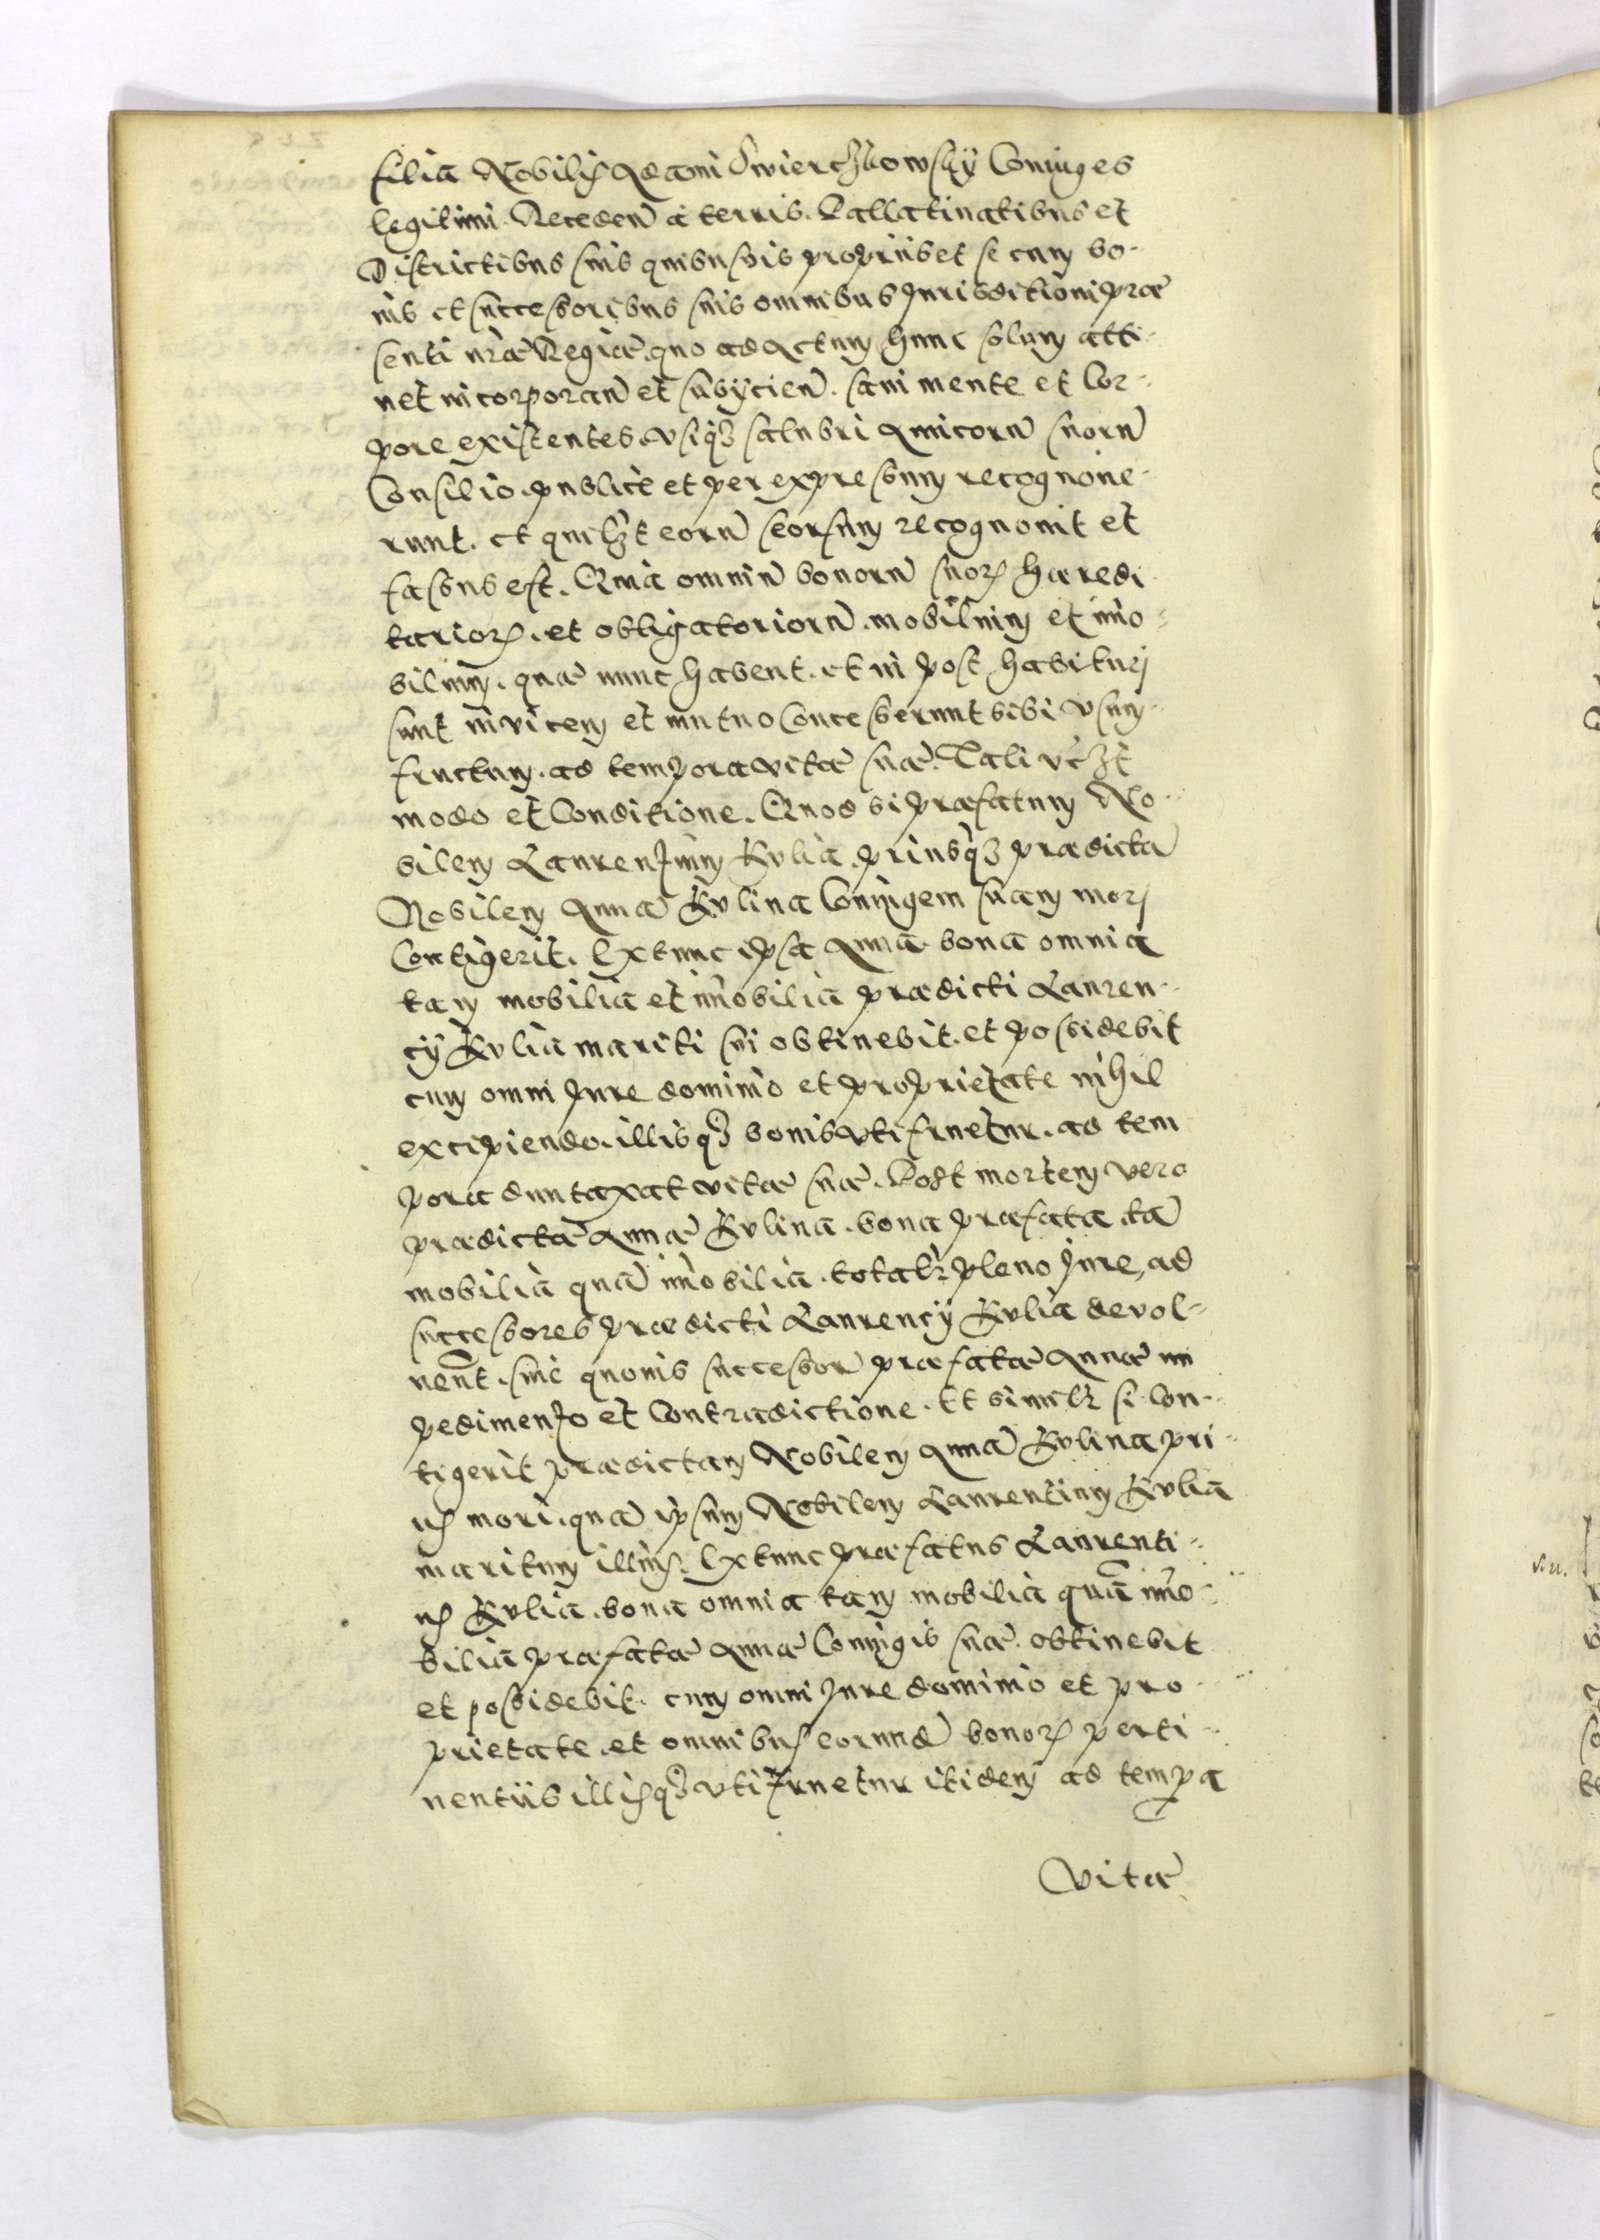 filia Nobilis Adami Swierchowsky Coniuges
legitimi. Recedeñ a terris. Pallatinatibus et
Districtibus suis quibusvis proprijs et se cum bo-
nis et successoribus suis omnibus Jurisdictioni præ
senti nr̃æ Regiæ. quo ad Actum hunc solum atti-
net incorporañ et subijcieñ. sani mente et Cor-
pore existentes. vsiq3 salubri Amicorũ suorũ
Consilio. publicè et per expressum recognoue-
runt. et quilz̃t eorũ seorsum recognouit et
fassus est. Quia omniũ bonorũ suoꝝ hæredi
tarioꝝ. et obligatoriorũ. mobilium et im̃o-
bilium. quæ nunc habent. et in post habituri
sunt invicem et mutuo Concesserunt sibi vsum-
fructum. ad tempora vitæ suæ. Tali vc̃z̃t
modo et Conditione. Quod si præfatum No-
bilem Laurentium Kulia. priusq̃3 prædictã
Nobilem Annã Kulina Coniugem suam mori
Contigerit. Extunc ipsa Anna. bona omnia
tam mobilia et im̃obilia prædicti Lauren-
cij Kulia mariti sui obtinebit. et possidebit
cum omni Jure dominio et proprietate nihil
excipiendo. illisq3 bonis vti fruetur. ad tem
pora duntaxat vitæ suæ. Post mortem vero
prædictæ Annæ Kulina. bona præfata tã
mobilia quã im̃obilia. totalr̃ pleno Jure, ad
successores prædicti Laurencij Kulia devol-
uẽnt. sinè quouis successoꝝ præfatæ Annæ im
pedimento et Contradictione. Et similr̃ si Con-
tigerit prædictam Nobilem Annã Kulina pri-
us mori. quã ipsum Nobilem Laurentium Kulia
maritum illius. Extunc præfatus Laurenti-
us Kulia. bona omnia tam mobilia quã im̃o-
bilia præfatæ Annæ Coniugis suæ. obtinebit
et possidebit. cum omni Jure dominio et pro-
prietate. et omnibus eorundẽ bonoꝝ perti-
nentiis illisq3 vti fruetur itidem ad tempa
vitæ